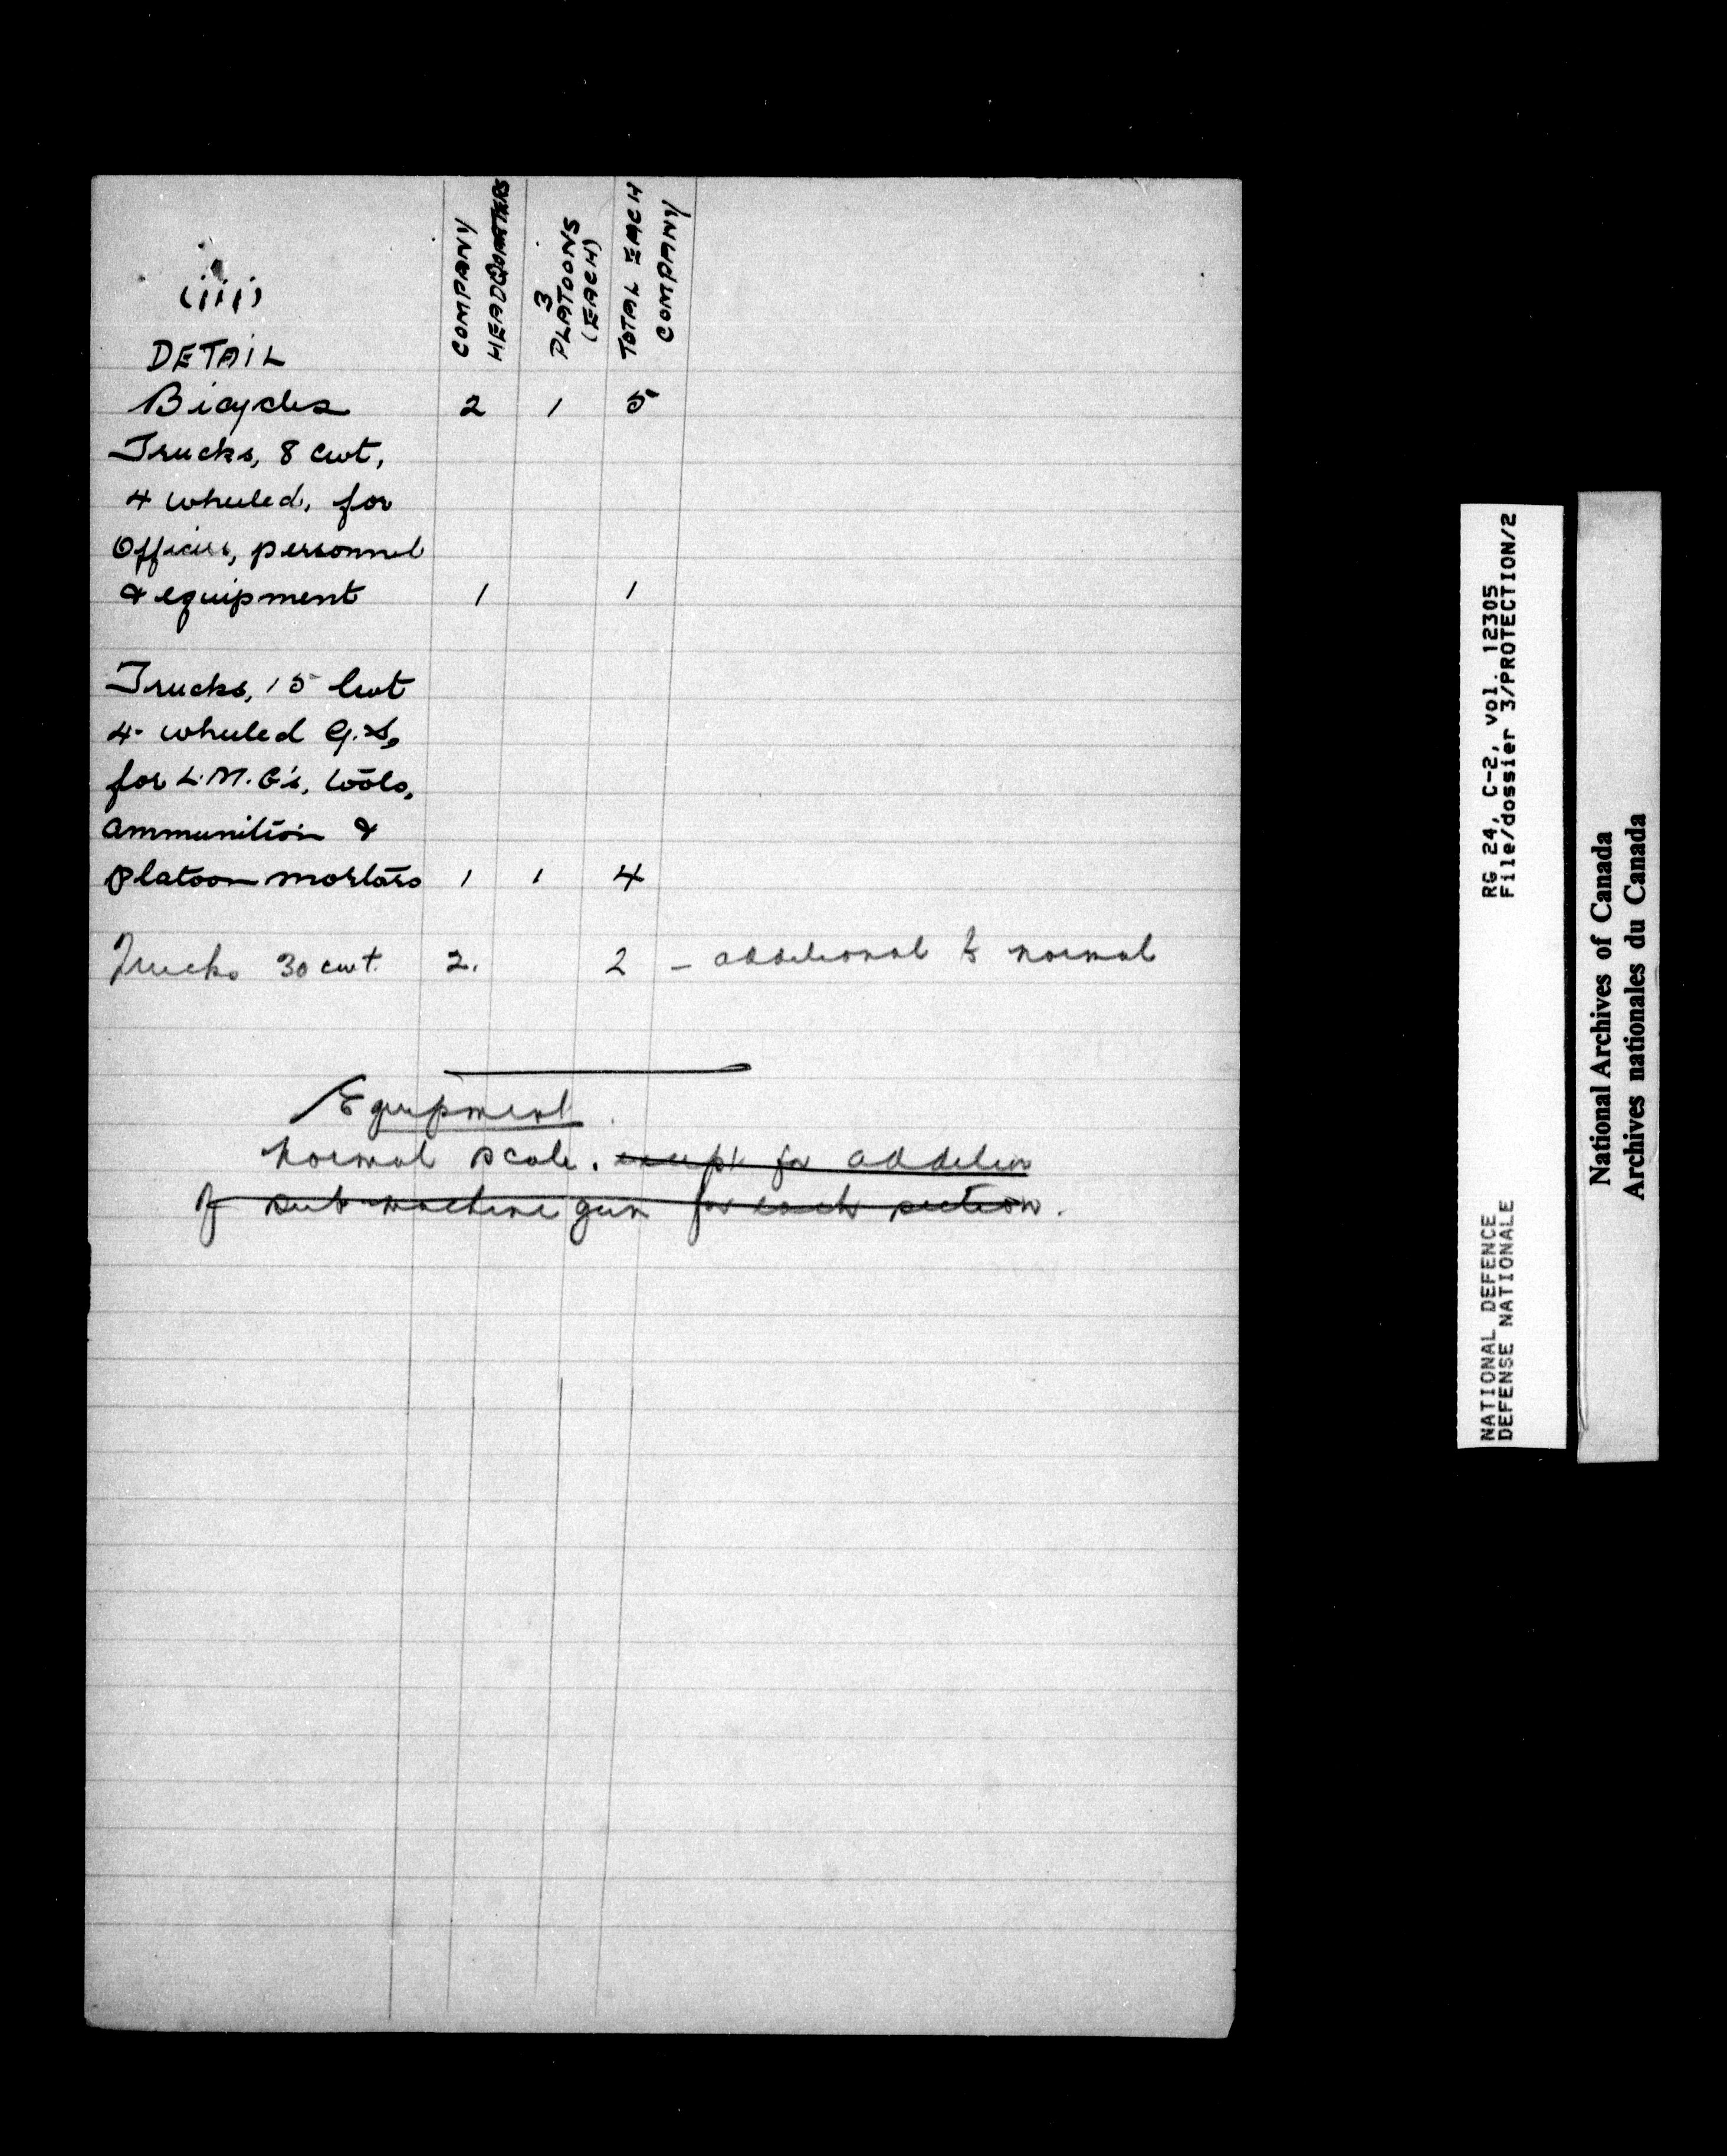 (iii)
DETAIL
COMPANY
HEADQUARTERS
3
PLATOONS
(EACH)
TOTAL EACH
COMPANY
Bicycles 2 1 5
Trucks, 8 cwt,
4 wheeled, for
Officers, personnel
& equipment 1 1
Trucks, 15 cwt
4- wheeled G.S,
for L.M.G's, tools,
ammunition &
platoon mortars 1 1 4
Trucks 30 cwt. 2. 2 - additional to normal
Equipment
normal scale. except for addition
of sub machine gun for each section.
RG 24, C-2, vol. 12305
File/dossier 3/PROTECTION/2
NATIONAL DEFENCE
DEFENSE NATIONALE
National Archives of Canada
Archives nationales du Canada